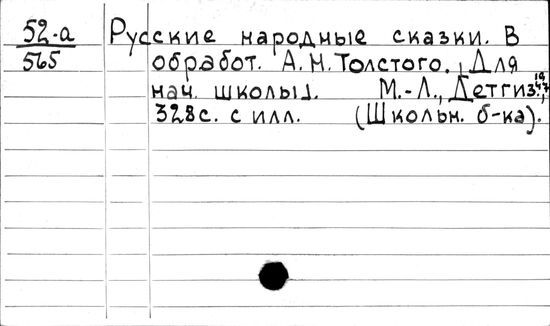 52-а
565
Русские народные сказки. В
обработ. А.Н.Толстого. Для
нач. школы. М.-Л., Детгиз, 1947,
328с. с илл. (Школьн. б-ка).